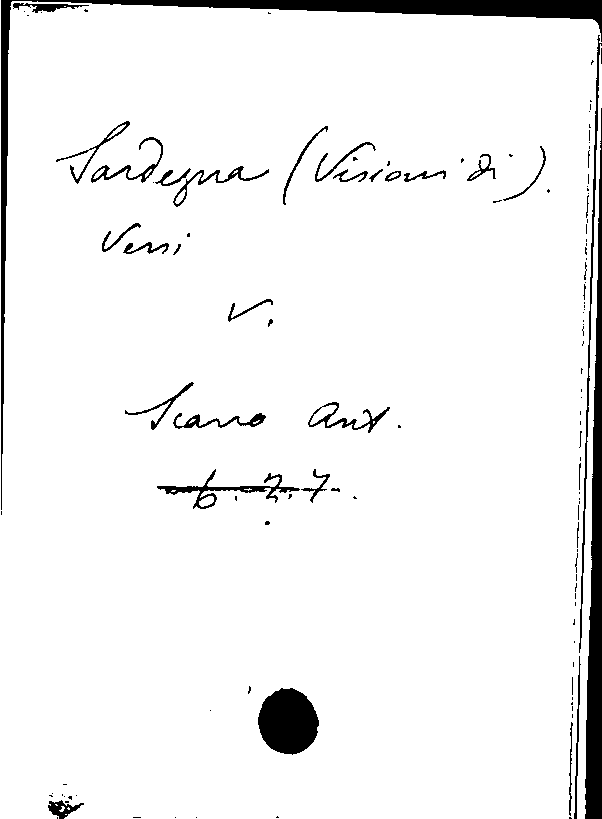 Sardegna (Visioni di).
Versi
V.
Scano Ant.
6.2.7.